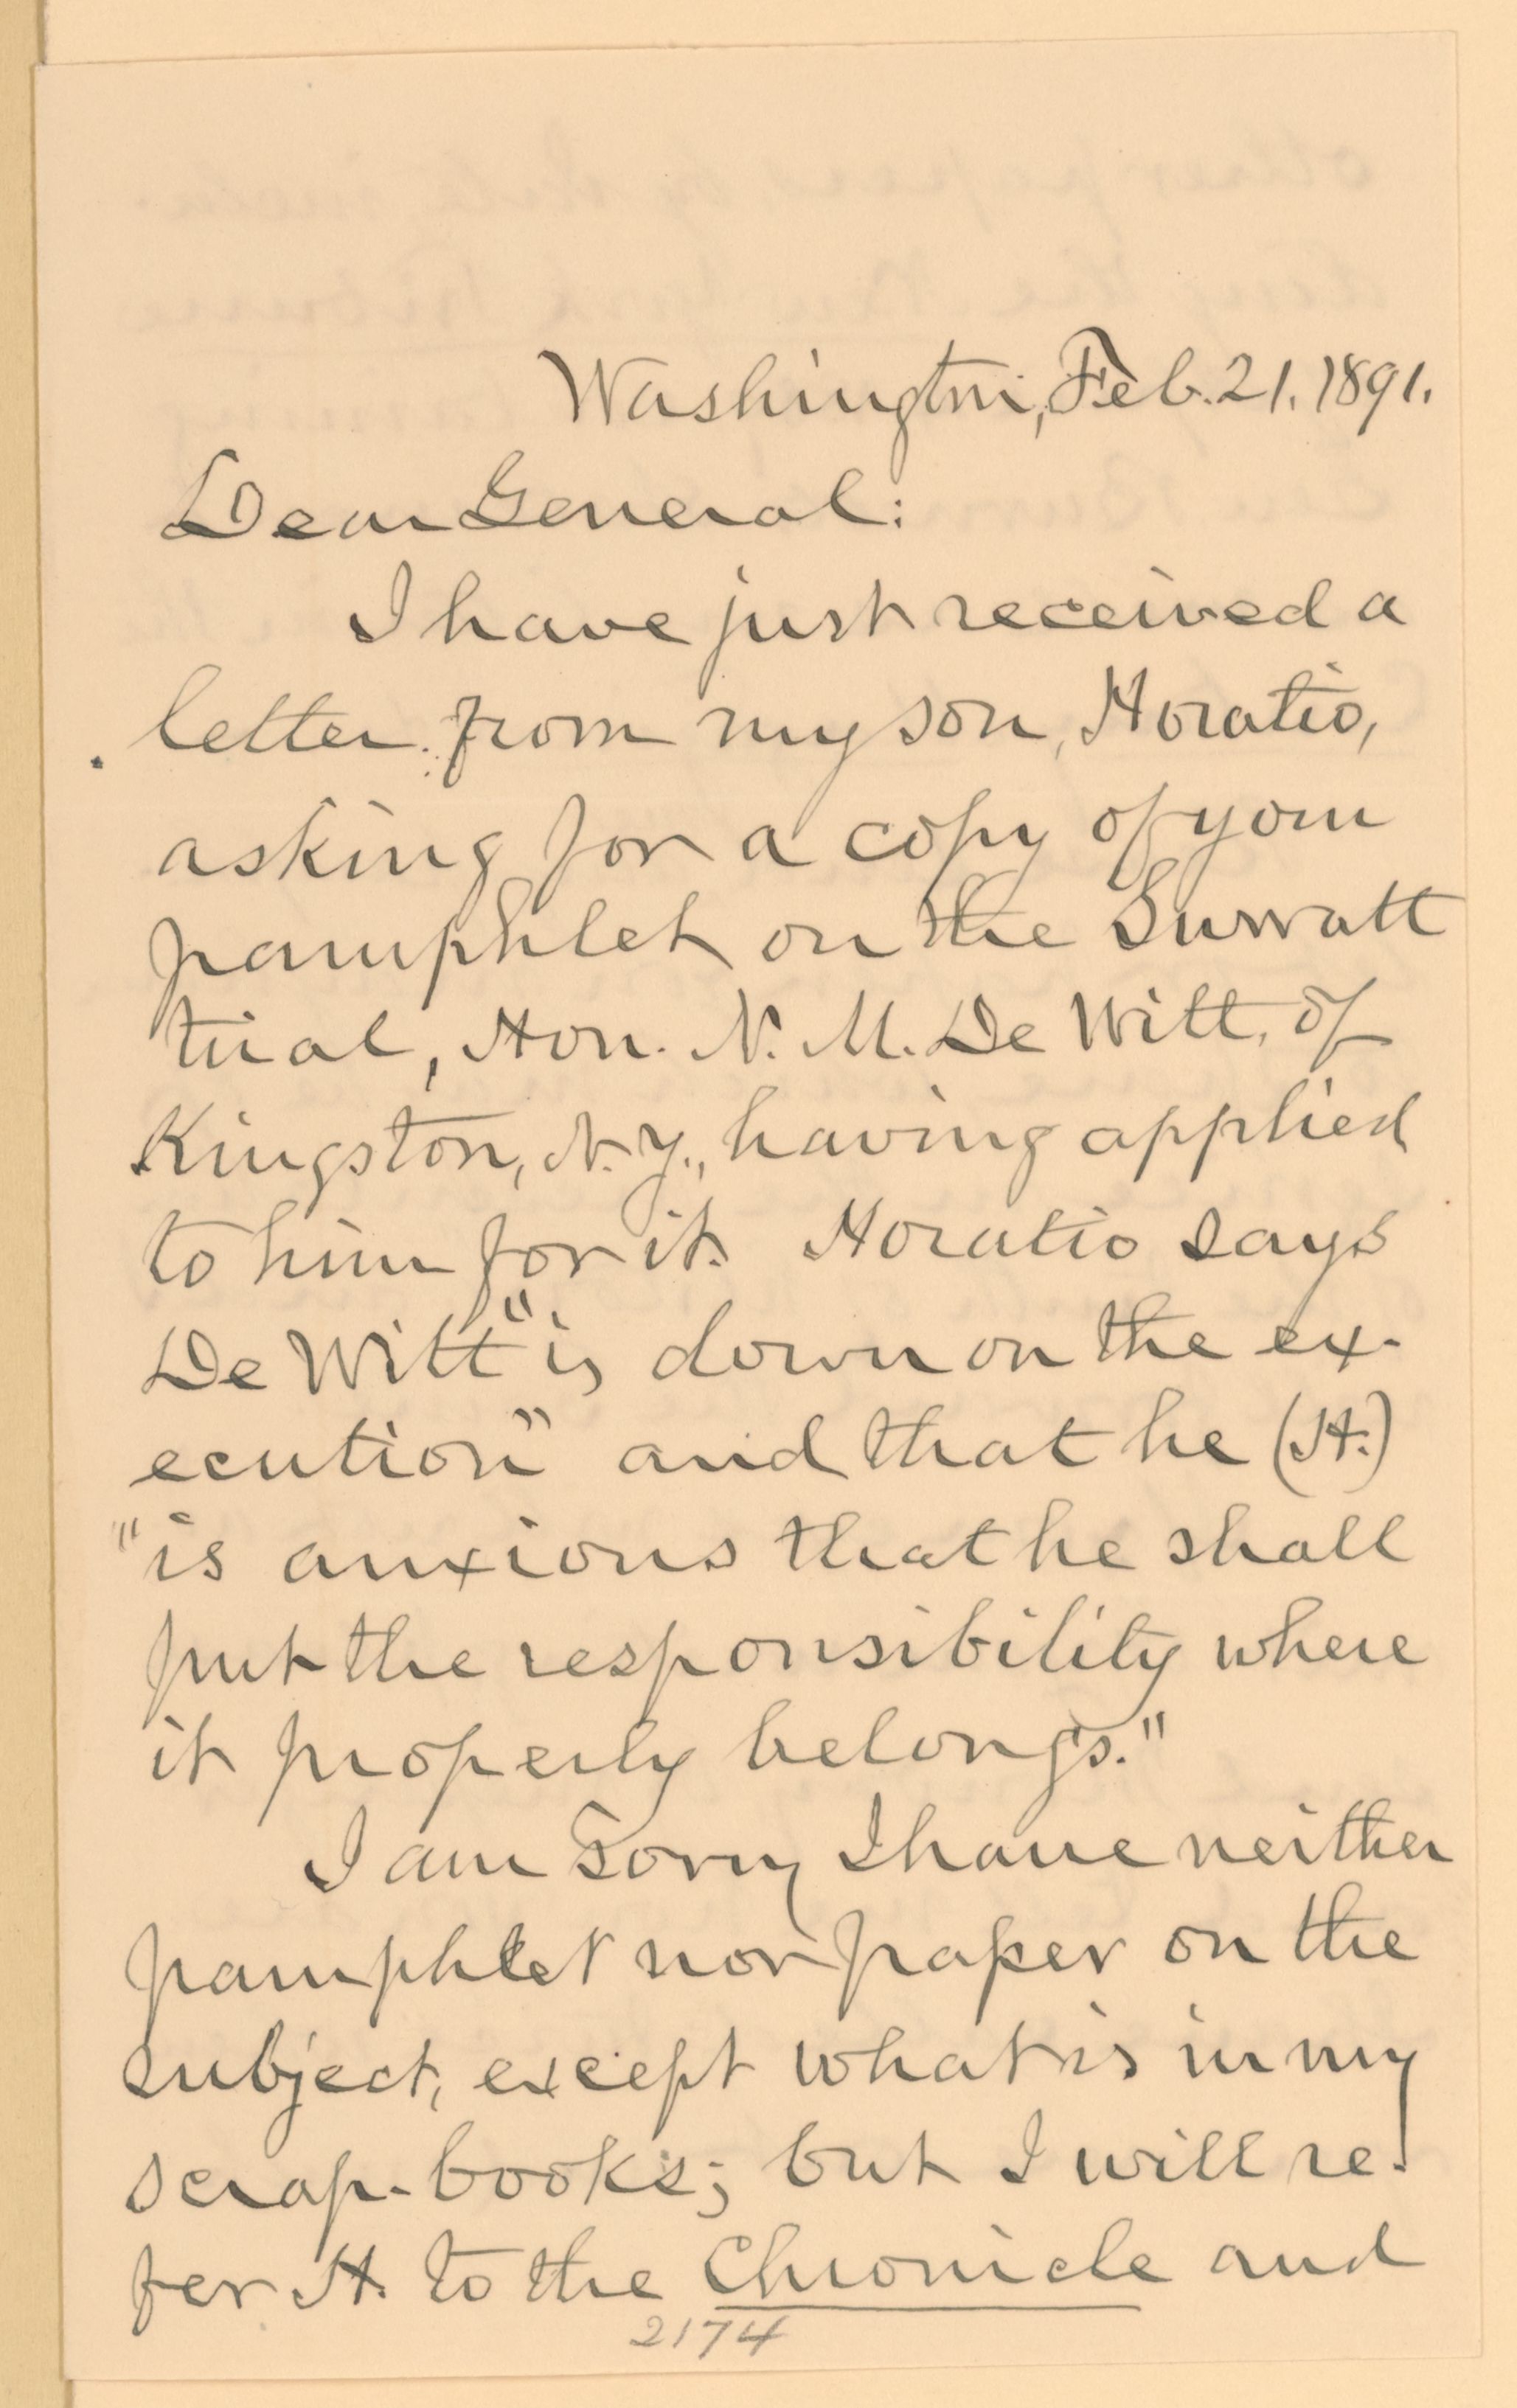 Washington, Feb. 21. 1891.
Dear General:
I have just received a
letter from my son, Horatio,
asking for a copy of your
pamphlet on the Surratt
trial, Hon. N. M. De Witt, of
Kingston, N. Y., having applied
to him for it. Horatio says
De Witt "is down on the ex-
ecution" and that he (H.)
"is anxious that he shall
put the responsibility where
it properly belongs."
I am sorry I have neither
pamphlet nor paper on the
subject, except what is in my
scrap-books; but I will re-
fer H. to the Chronicle and
2174